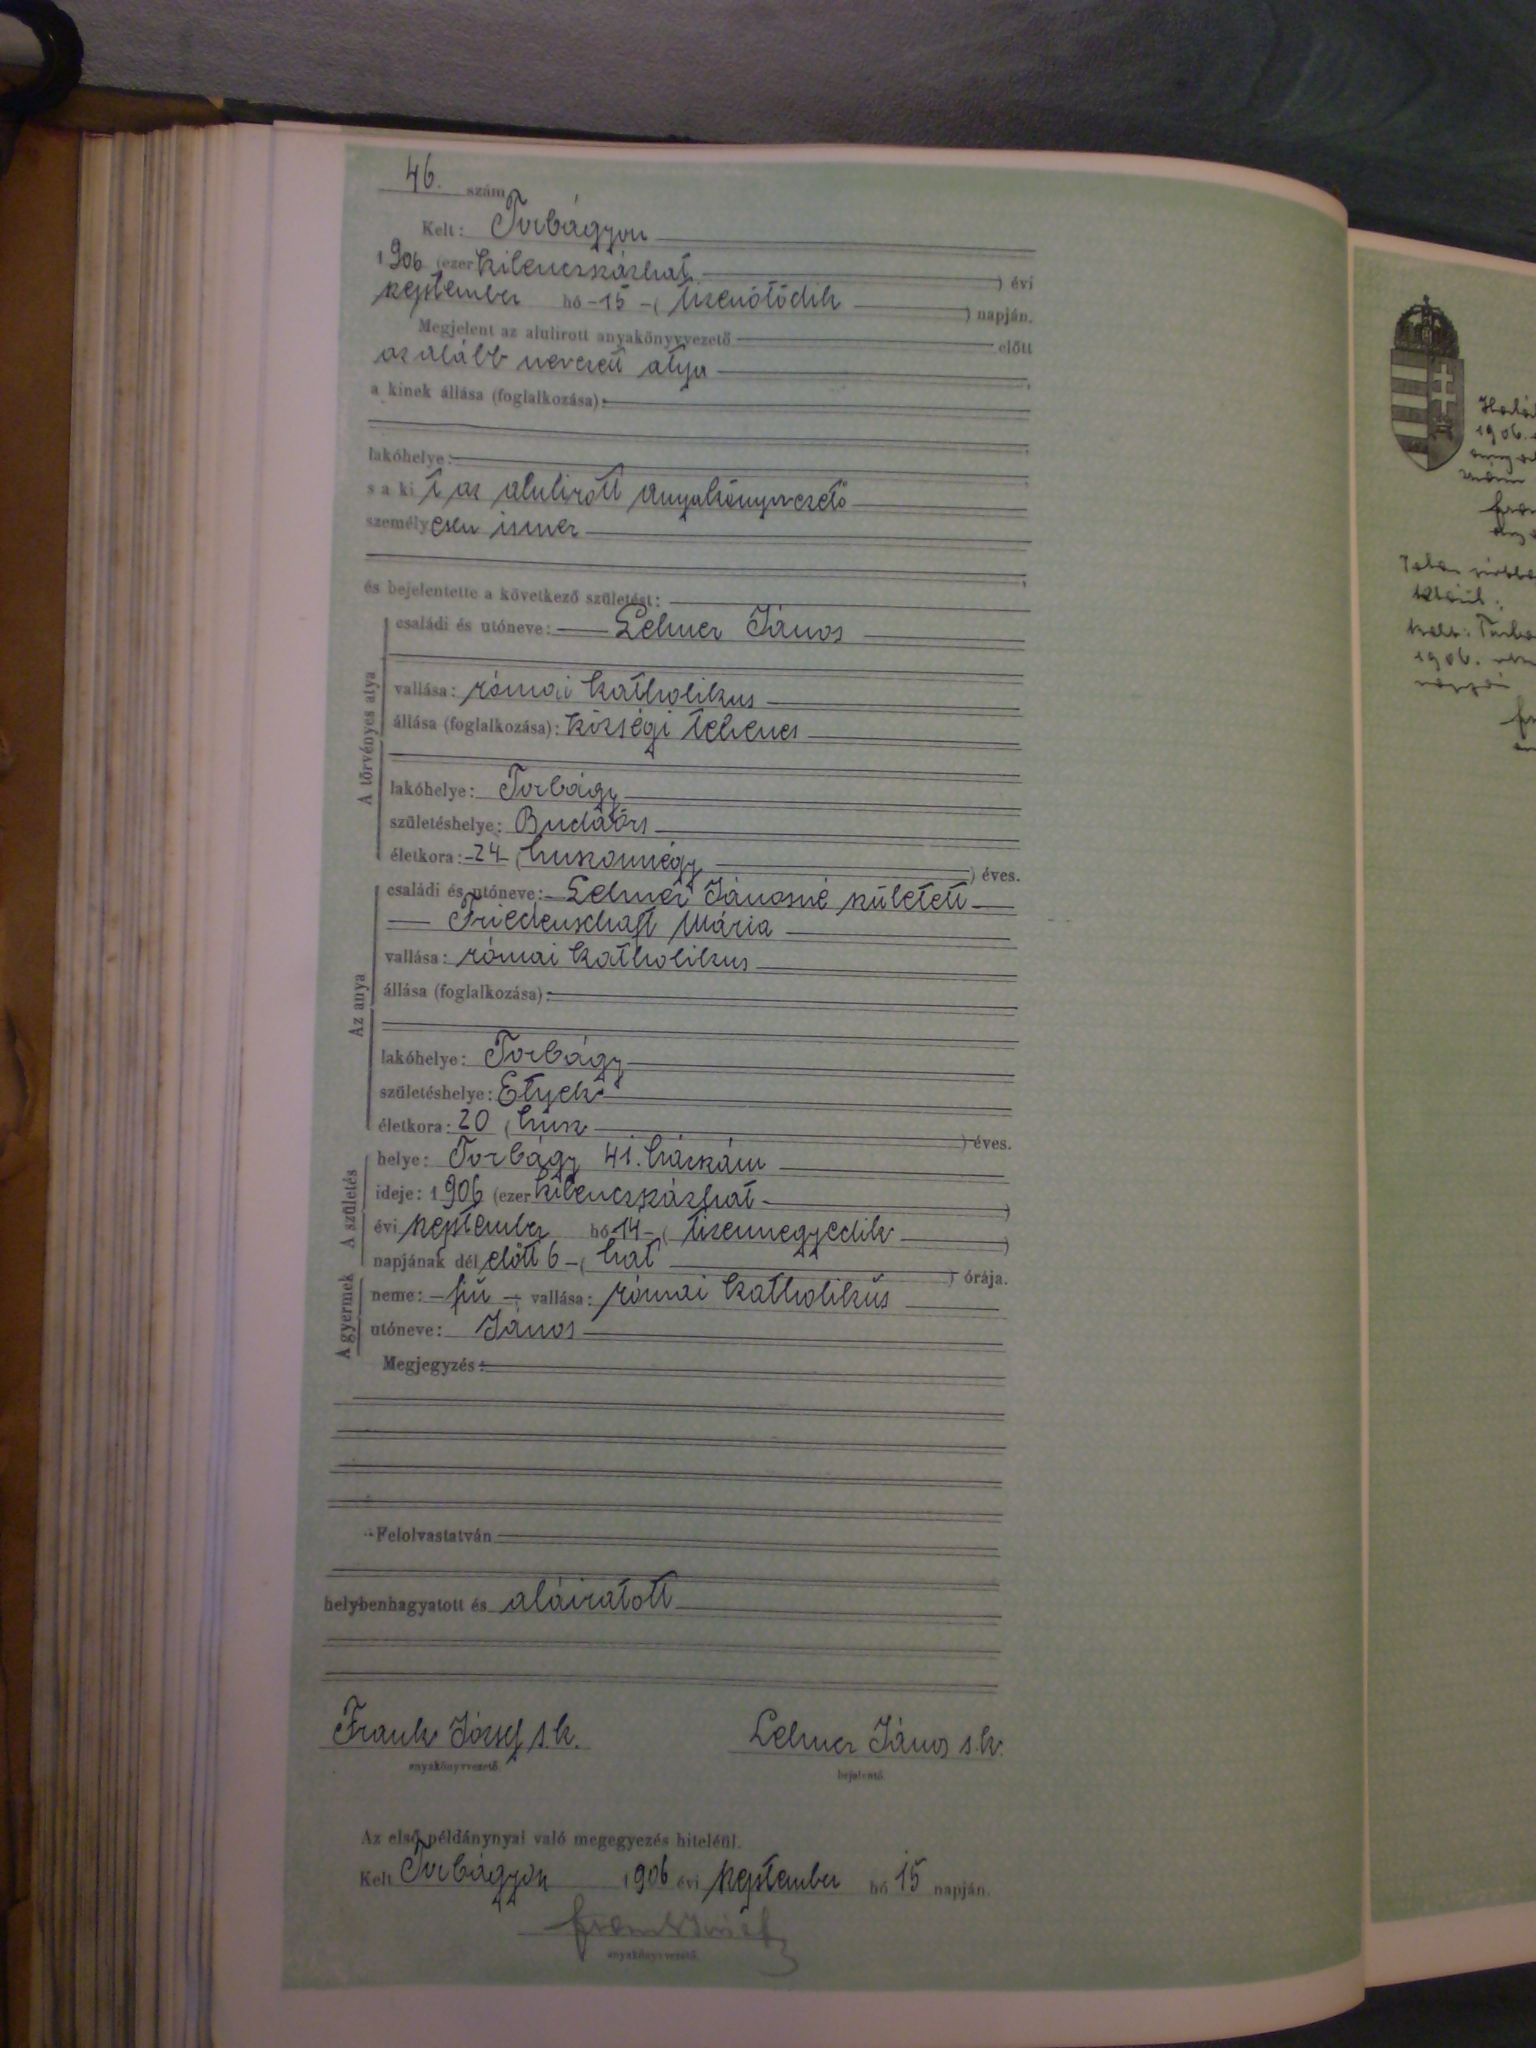 46. szám
Kelt: Torbágyon
1906 (ezer kilenczszázhat ) évi
szeptember hó -15 -( tizenötödik ) napján.
Megjelent az alulirott anyakönyvvezető előtt
az alább nevezett atya ,
a kinek állása (foglalkozása):
lakóhelye:
s a ki t az alulirott anyakönyvvezető
személy esen ismer
és bejelentette a következő születést:
A törvényes atya
családi és utóneve: Lehner János
vallása: római katholikus
állása (foglalkozása): községi tehenes
lakóhelye: Torbágy
születéshelye: Budaörs
életkora: -24- (huszonnégy ) éves.
Az anya
családi és utóneve: Lehner Jánosné született
Friedenschaft Mária
vallása: római katholikus
állása (foglalkozása):
lakóhelye: Torbágy
születéshelye: Etyek
életkora: 20 (húsz ) éves.
A születés
helye: Torbágy 41. házszám
ideje: 1906 (ezer kilenczszázhat )
évi szeptember hó -14- ( tizennegyedik )
napjának dél előtt 6 -( hat ) órája.
A gyermek
neme: - fiú - ; vallása: római katholikus
utóneve: János
Megjegyzés:
Felolvastatván
helybenhagyatott és aláiratott
Frank József s.k. Lehner János s.k.
anyakönyvvezető. bejelentő.
Az első példánynyal való megegyezés hiteléül.
Kelt Torbágyon 1906 évi szeptember hó 15 napján.
Frank József
anyakönyvvezető.
1906.
1906.